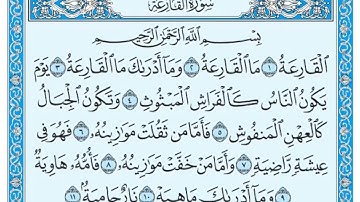 سُورَةُ القَارِعَةِ
بِسْمِ اللَّهِ الرَّحْمَٰنِ الرَّحِيمِ
الْقَارِعَةُ ١ مَا الْقَارِعَةُ ٢ وَمَا أَدْرَىٰكَ مَا الْقَارِعَةُ ٣ يَوْمَ
يَكُونُ النَّاسُ كَالْفَرَاشِ الْمَبْثُوثِ ٤ وَتَكُونُ الْجِبَالُ
كَالْعِهْنِ الْمَنفُوشِ ٥ فَأَمَّا مَن ثَقُلَتْ مَوَٰزِينُهُ ٦ فَهُوَ فِي
عِيشَةٍ رَّاضِيَةٍ ٧ وَأَمَّا مَنْ خَفَّتْ مَوَٰزِينُهُ ٨ فَأُمُّهُ هَاوِيَةٌ
٩ وَمَا أَدْرَىٰكَ مَا هِيَهْ ١٠ نَارٌ حَامِيَةٌ ١١